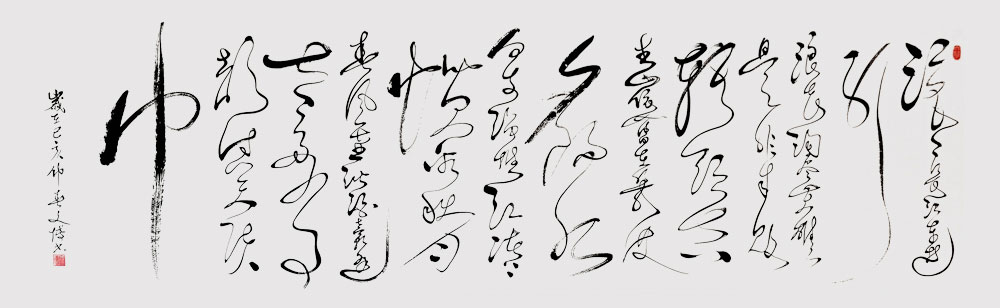 滚滚长江东逝
水
浪花淘尽英雄
是非成败
转头空
青山依旧在几度
夕阳红
白发渔樵江渚上
惯看秋月
春风一壶浊酒喜相逢
古今多少事
都付笑谈
中
歲在己亥仲春文